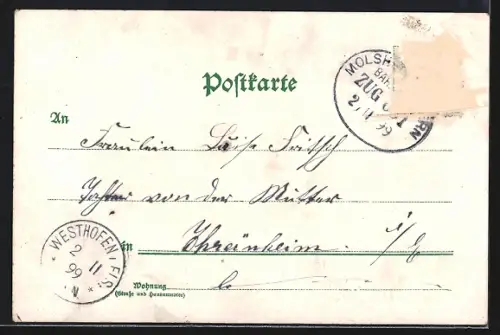 Postkarte
MOLSH
BA
ZUG
2/11 99
RN
An
Fräulein Luise Fritsch
von der Mutter
in
i/E
WESTHOFEN i. ELS.
2
11
99
N.
Wohnung
(Straße und Hausnummer)